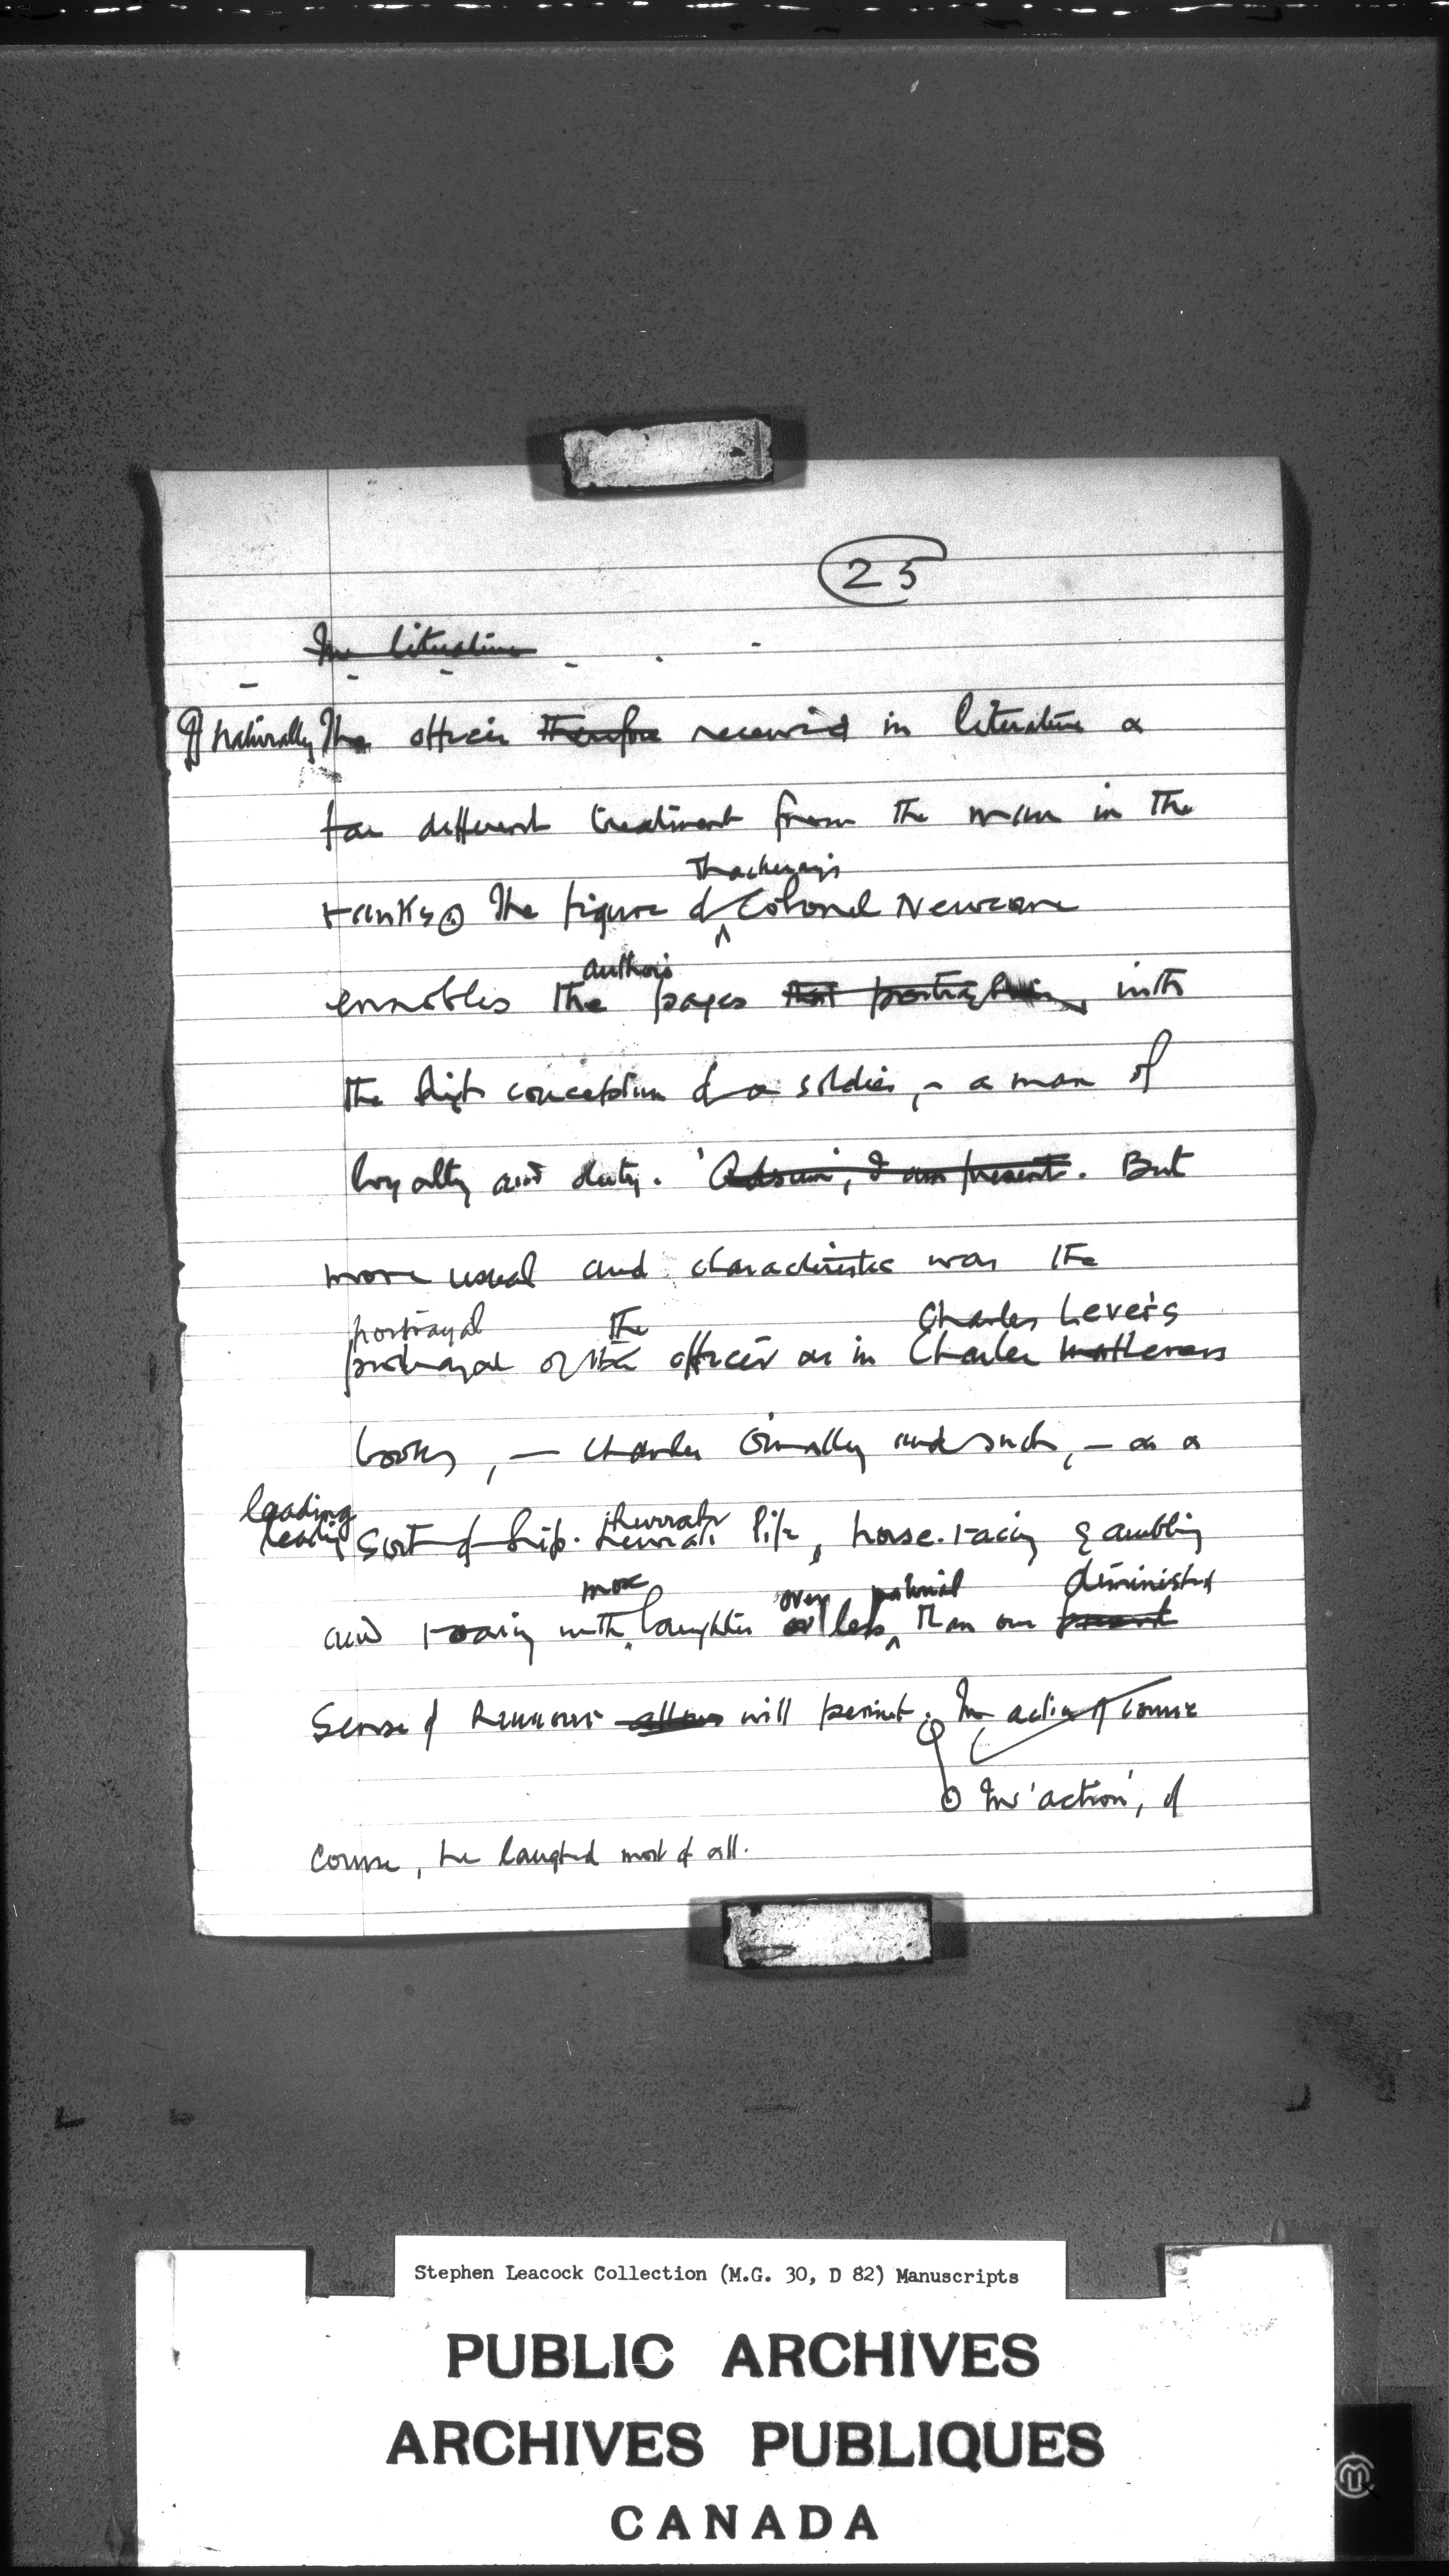 25
In literature
Naturally The officer therefore received in literature a
far different treatment from the man in the
Thackeray's
ranks. The figure of Colonel Newcome
author's
ennobles the pages that portray him, with
the high conception of a soldier, - a man of
loyalty and duty. 'Adsum', I am present. But
more usual and characteristic was the
portrayal the Charles Lever's
portrayal of the officer as in Charles
books, — Charles O'Malley and such, - as a
leading
leading sort of hurrah
life, horse-racing gambling
more over diminished
and roaring with laughter or less than our present
sense of humour allows will permit. In action of course
In 'action', of
course, he laughed most of all.
Stephen Leacock Collection (M.G. 30, D 82) Manuscripts
PUBLIC ARCHIVES
ARCHIVES PUBLIQUES
CANADA